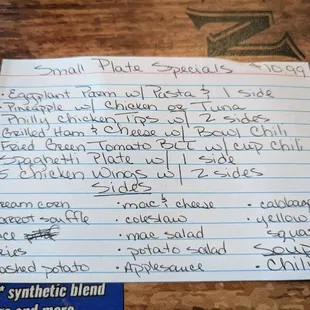 Small Plate Specials $10.99
• Eggplant Parm w/ Pasta & 1 side
• Pineapple w/ Chicken or Tuna
Philly Chicken Tips w/ 2 sides
Grilled Ham & Cheese w/ Bowl Chili
Fried Green Tomato BLT w/ cup Chili
Spaghetti Plate w/ 1 side
5 Chicken Wings w/ 2 sides
Sides
ream corn • mac & cheese
arrot souffle • coleslaw • yellow
• mac salad squas
ries • potato salad Soup
ashed potato • Applesauce • Chili
* synthetic blend
and more